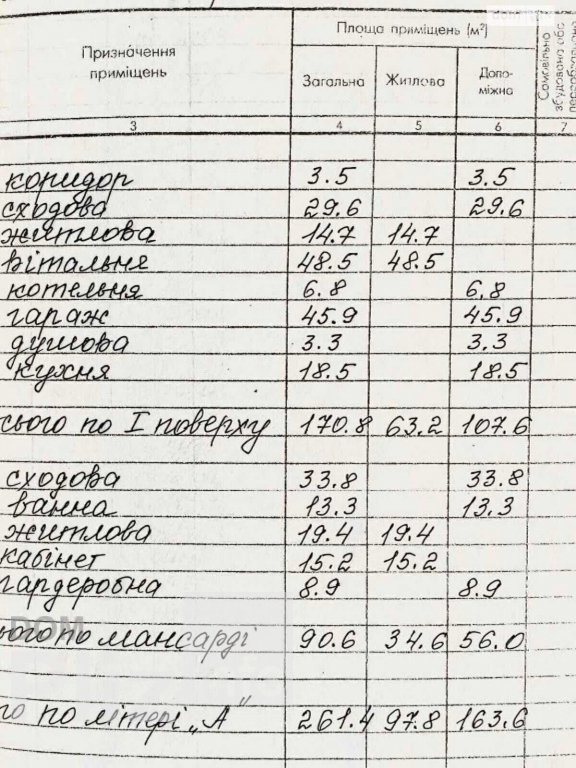 Призначення приміщень
Площа приміщень (м²)
Загальна Житлова Допо-
міжна
Самовільно
збудована або
3 4 5 6 7
коридор 3.5 3.5
сходова 29.6 29.6
житлова 14.7 14.7
вітальня 48.5 48.5
котельня 6.8 6.8
гараж 45.9 45.9
душова 3.3 3.3
кухня 18.5 18.5
сього по І поверху 170.8 63.2 107.6
сходова 33.8 33.8
ванна 13.3 13.3
житлова 19.4 19.4
кабінет 15.2 15.2
гардеробна 8.9 8.9
ього по мансарді 90.6 34.6 56.0
го по літері „А" 261.4 97.8 163.6
DOM